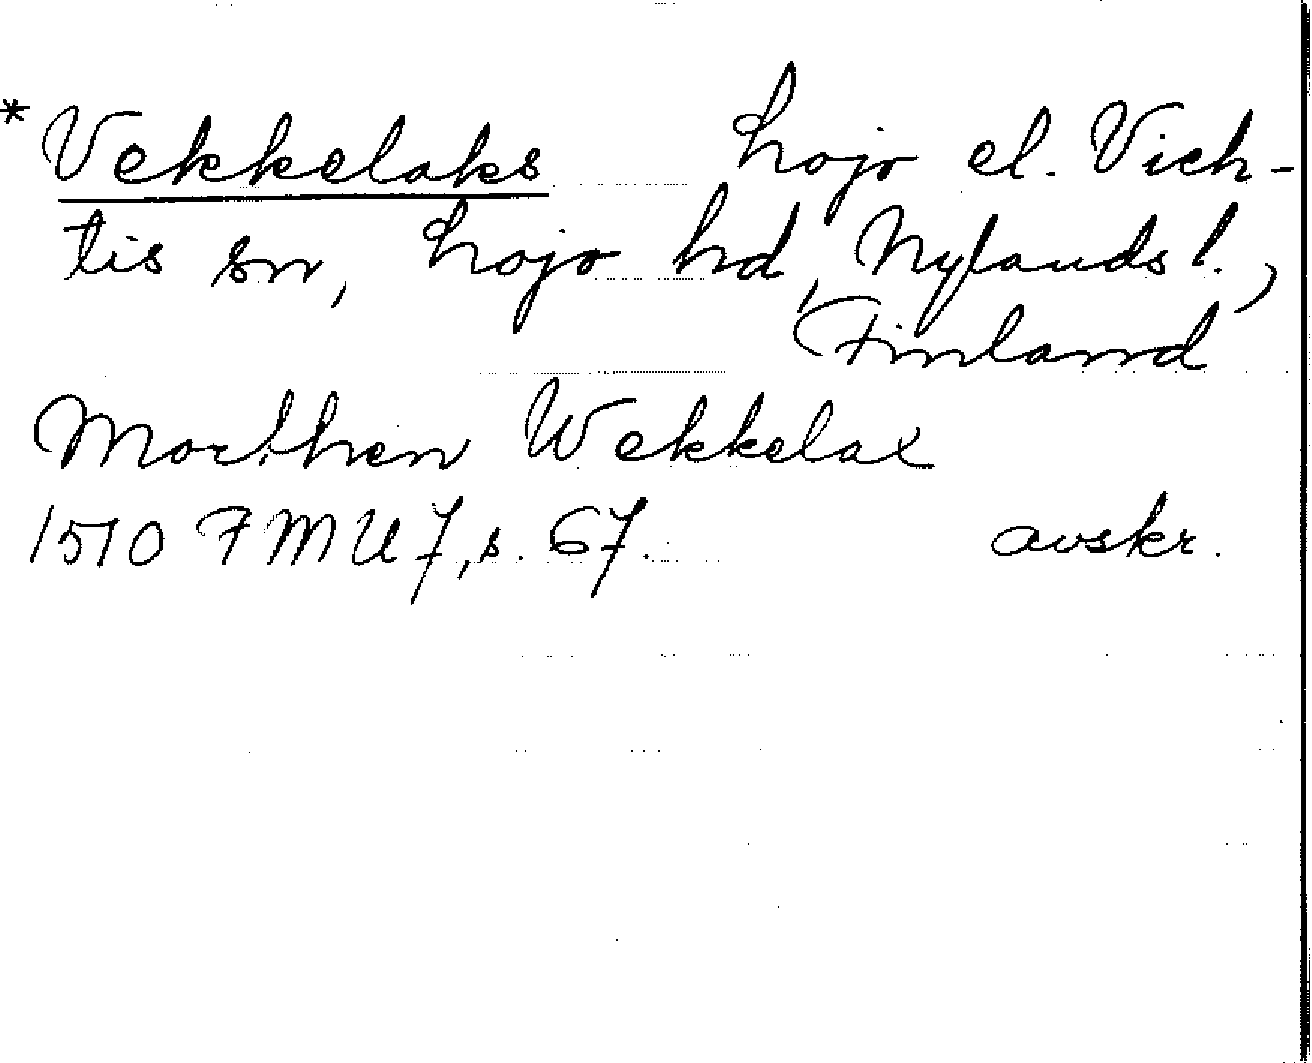 *Vekkelaks Lojo el. Vich-
tis sn, Lojo hd, Nylands l.,
Finland
Morthen Wekkelax
1510 FMU 7, s. 67. avskr.